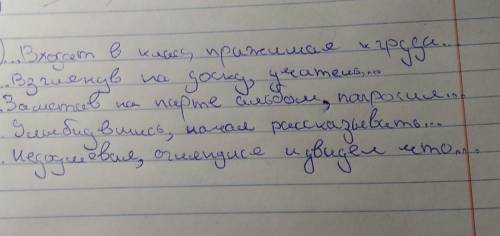 )...Входит в класс, прижимая к груди...
..Взглянув на доску, учитель...
.Заметив на парте альбом, попросил...
.Улыбнувшись, начал рассказывать...
.Недоумевая, оглянулся и увидел что...